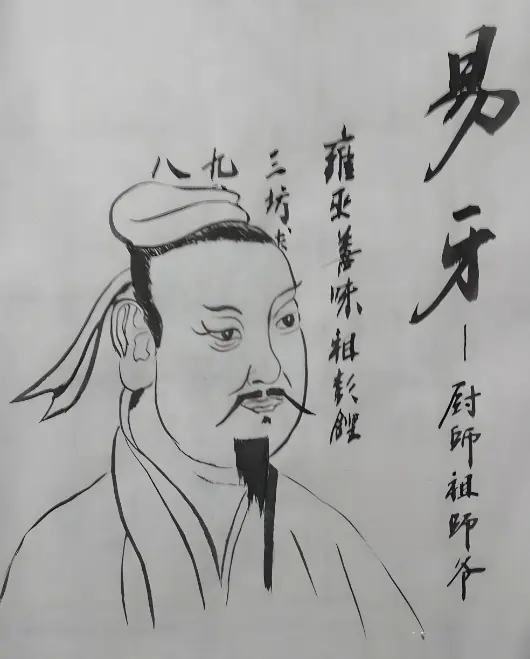 易牙—厨師祖師爷
雍巫善味祖彭鏗
三坊
九
八